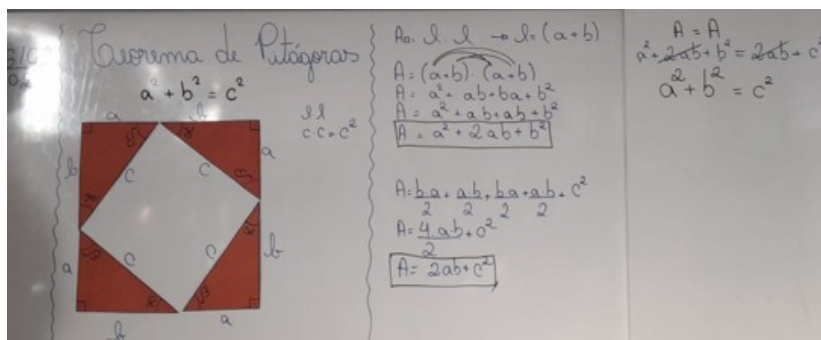 Teorema de Pitágoras
a² + b² = c²
a b
b c c a
a c c b
b a
l l
c·c = c²
A = l · l → l = (a+b)
A = (a+b) · (a+b)
A = a² + ab + ba + b²
A = a² + ab + ab + b²
A = a² + 2ab + b²
A = ba/2 + ab/2 + ba/2 + ab/2 + c²
A = 4ab/2 + c²
A = 2ab + c²
A = A
a² + 2ab + b² = 2ab + c²
a² + b² = c²